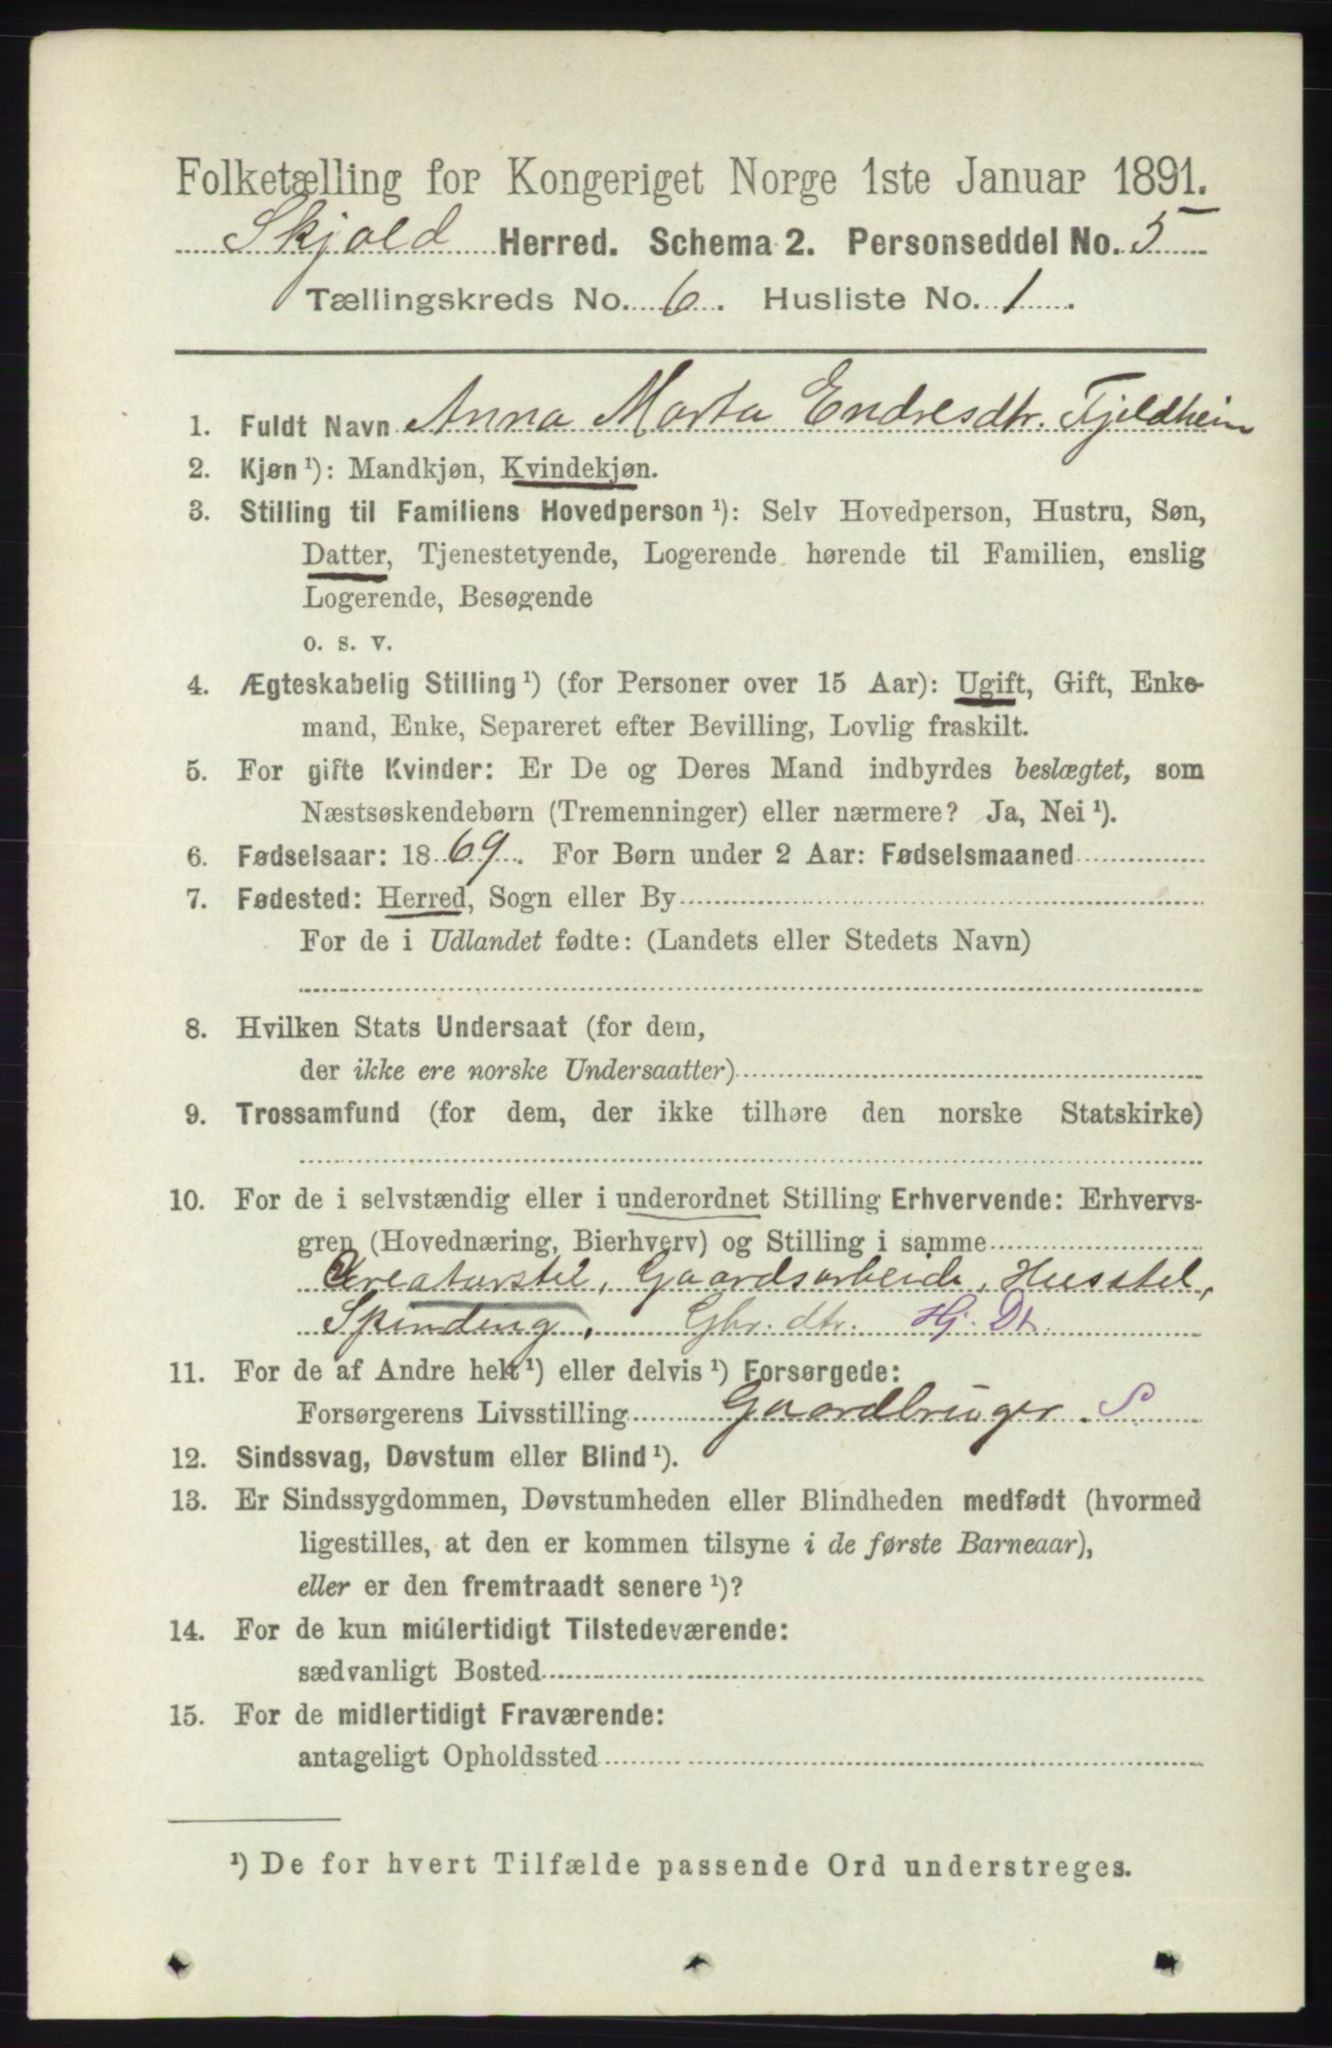 Folketælling for Kongeriget Norge 1ste Januar 1891.
Skjold Herred. Schema 2. Personseddel No. 5
Tællingskreds No. 6. Husliste No. 1.
1. Fuldt Navn Anna Marta Endresdtr. Fjeldheim
2. Kjøn ¹): Mandkjøn, Kvindekjøn.
3. Stilling til Familiens Hovedperson ¹): Selv Hovedperson, Hustru, Søn,
Datter, Tjenestetyende, Logerende hørende til Familien, enslig
Logerende, Besøgende
o. s. v.
4. Ægteskabelig Stilling ¹) (for Personer over 15 Aar): Ugift, Gift, Enke-
mand, Enke, Separeret efter Bevilling, Lovlig fraskilt.
5. For gifte Kvinder: Er De og Deres Mand indbyrdes beslægtet, som
Næstsøskendebørn (Tremenninger) eller nærmere? Ja, Nei ¹).
6. Fødselsaar: 1869. For Børn under 2 Aar: Fødselsmaaned
7. Fødested: Herred, Sogn eller By
For de i Udlandet fødte: (Landets eller Stedets Navn)
8. Hvilken Stats Undersaat (for dem,
der ikke ere norske Undersaatter)
9. Trossamfund (for dem, der ikke tilhøre den norske Statskirke)
10. For de i selvstændig eller i underordnet Stilling Erhvervende: Erhvervs-
gren (Hovednæring, Bierhverv) og Stilling i samme
Kreaturstel, Gaardsarbeide, Husstel,
Spinding, Gbr. dtr. Hj. Dt.
11. For de af Andre helt ¹) eller delvis ¹) Forsørgede:
Forsørgerens Livsstilling Gaardbruger. S
12. Sindssvag, Døvstum eller Blind ¹).
13. Er Sindssygdommen, Døvstumheden eller Blindheden medfødt (hvormed
ligestilles, at den er kommen tilsyne i de første Barneaar),
eller er den fremtraadt senere ¹)?
14. For de kun midlertidigt Tilstedeværende:
sædvanligt Bosted
15. For de midlertidigt Fraværende:
antageligt Opholdssted
¹) De for hvert Tilfælde passende Ord understreges.